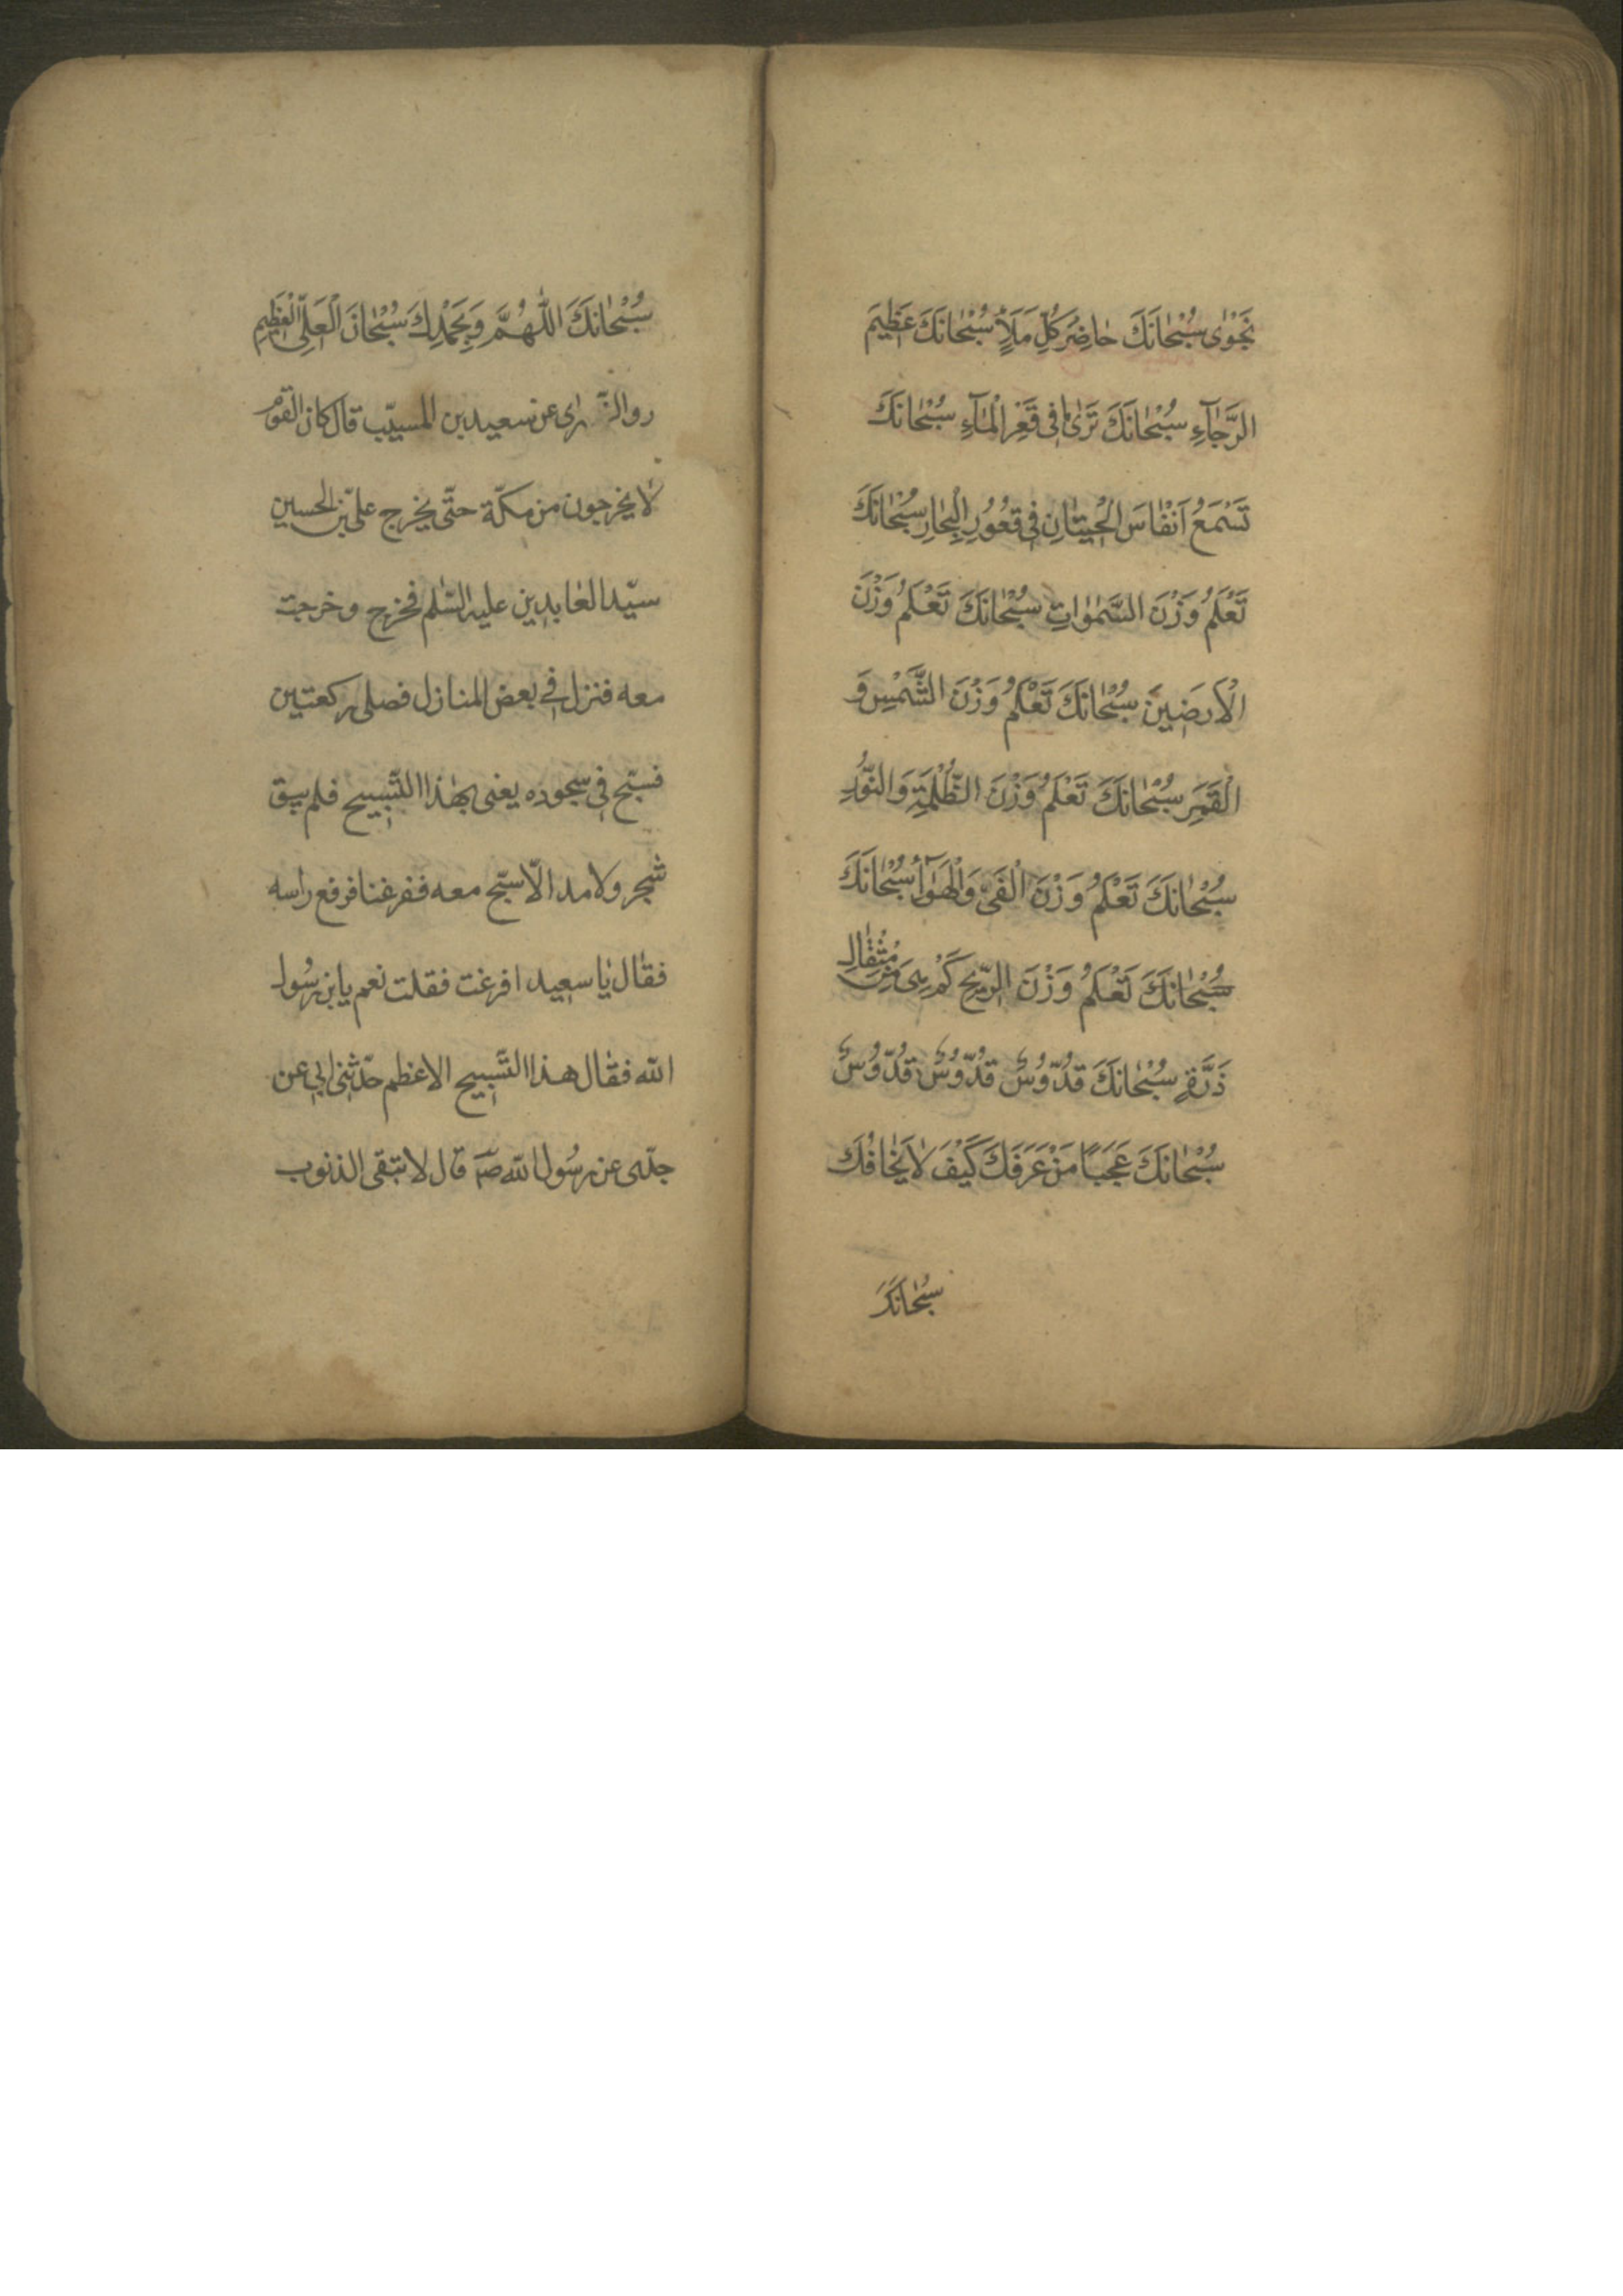 نَجْوٰى سُبْحٰانَكَ حٰاضِرَ كُلِّ مَلَإٍ سُبْحٰانَكَ عَظِيمَ
الرَّجٰآءِ سُبْحٰانَكَ تَرٰى مٰا فِى قَعْرِ الْمٰآءِ سُبْحٰانَكَ
تَسْمَعُ اَنْفٰاسَ الْحِيتٰانِ فِى قُعُورِ الْبِحٰارِ سُبْحٰانَكَ
تَعْلَمُ وَزْنَ السَّمٰوٰاتِ سُبْحٰانَكَ تَعْلَمُ وَزْنَ
الْاَرَضِينَ سُبْحٰانَكَ تَعْلَمُ وَزْنَ الشَّمْسِ وَ
الْقَمَرِ سُبْحٰانَكَ تَعْلَمُ وَزْنَ الظُّلْمَةِ وَالنُّورِ
سُبْحٰانَكَ تَعْلَمُ وَزْنَ الْفَىْءِ وَالْهَوٰآءِ سُبْحٰانَكَ
سُبْحٰانَكَ تَعْلَمُ وَزْنَ الرِّيحِ كَمْ هِىَ مِنْ مِثْقٰالِ
ذَرَّةٍ سُبْحٰانَكَ قُدُّوسٌ قُدُّوسٌ قُدُّوسٌ
سُبْحٰانَكَ عَجَبًا مَنْ عَرَفَكَ كَيْفَ لٰا يَخٰافُكَ
سُبْحٰانَكَ
سُبْحٰانَكَ اللّٰهُمَّ وَبِحَمْدِكَ سُبْحٰانَ الْعَلِىِّ الْعَظِيمِ
روا الزّهرى عن سعيد بن المسيّب قال كان القوم
لا يخرجون من مكّة حتّى يخرج علىّ بن الحسين
سيّد العابدين عليه السّلم فخرج وخرجت
معه فنزل في بعض المنازل فصلى ركعتين
فسبّح في سجوده يعنى بهذا التّسبيح فلم يبق
شجر ولا مدر الّا سبّح معه ففزعنا فرفع راسه
فقال يا سعيد افزعت فقلت نعم يا بن رسول
الله فقال هذا التّسبيح الاعظم حدّثنى ابى عن
جدّى عن رسُول الله صۤ قال لا تبقى الذنوب